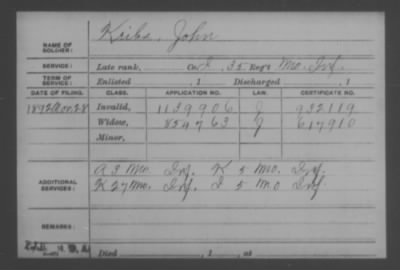 NAME OF SOLDIER: Kribs, John
SERVICE: Late rank, Co. I, 35 Reg't Mo. Inf.
TERM OF SERVICE: Enlisted , 1 Discharged , 1
DATE OF FILING. CLASS. APPLICATION NO. LAW. CERTIFICATE NO.
1892 Nov. 28 Invalid, 1139906 J 932119
Widow, 859763 J 617910
Minor,
ADDITIONAL SERVICES: A 3 Mo. Inf. K 5 Mo. Inf.
K 27 Mo. Inf. I 5 Mo Inf.
REMARKS:
Died , 1 , at